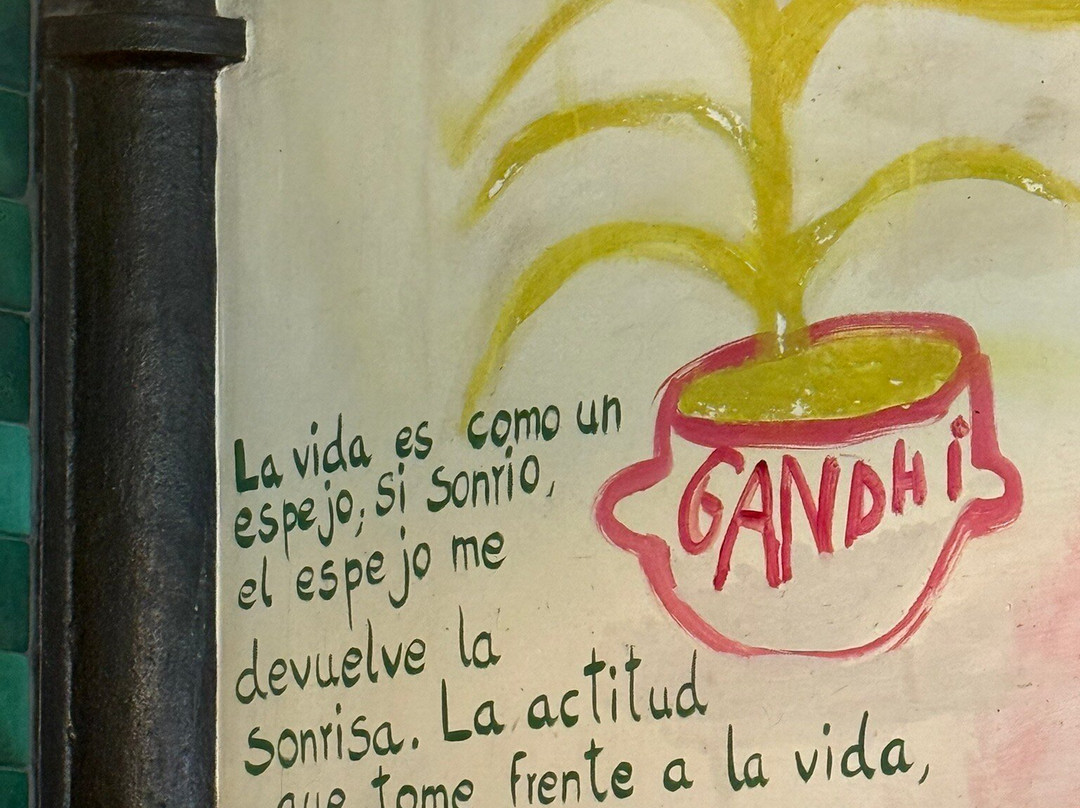 La vida es como un
espejo; si sonrio,
el espejo me
devuelve la
sonrisa. La actitud
que tome frente a la vida,
GANDHi